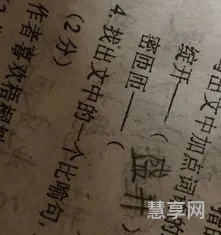 出文中加点词的
绽开——(盛开
密匝匝——(
4. 找出文中的一个比喻句,
(2分)
作者喜欢梧桐
慧享网